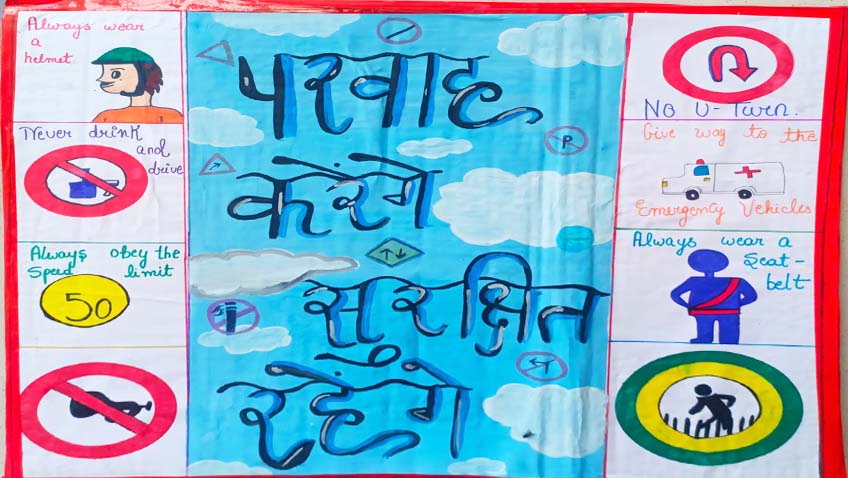 Always wear
a
helmet
Never drink
and
drive
Always obey the
Speed limit
50
परवाह
P
करेंगे
सुरक्षित
रहेंगे
No U-Turn.
Give way to the
Emergency Vehicles
Always wear a
Seat-
belt